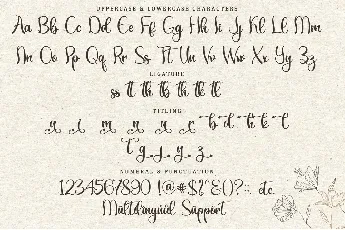 UPPERCASE & LOWERCASE CHARACTERS
Aa Bb Cc Dd Ee Ff Gg Hh Ii Jj Kk Ll Mm
Nn Oo Pp Qq Rr Ss Tt Uu Vv Ww Xx Yy Zz
LIGATURE
TITLING
g j y z
NUMERAL & PUNCTUATION
1234567890 !@#$%^&()?:; etc.
Multilingual Support